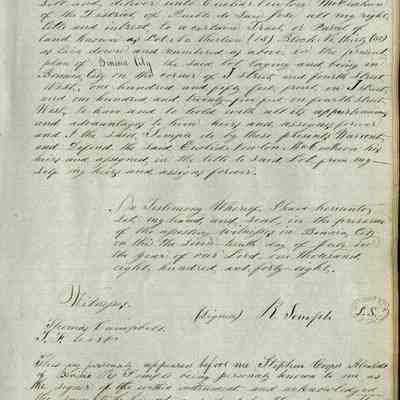 Sell and, deliver unto
of the District of Puebla de San José all my right,
title and interest to a certain Tract or Parcel of
land Known as Lot No thirteen (13) Block thirty (30)
as laid down and numbered as above on the present
plan of Benicia City the said lot laying and being in
Benicia City on the corner of J street and fourth Street
West, one hundred and fifty feet front on J street
and one hundred and twenty-five feet on fourth street
West, to have and to hold with all its appurtenances
and advantages to him heirs and assigns forever
and I the said Semple do by these presents Warrant
and Defend the said
heirs and assigns, in the title to said Lot, from my-
self my heirs and assigns forever.
In Testimony Whereof, I have hereunto
Set my hand, and Seal, in the presence
of the attesting witnesses in Benicia City
on this the day of July in
the year of our Lord, one thousand,
eight, hundred, and, forty-eight.
Witnesses
(signed) R. Semple L.S.
Thomas Campbell
This day personally appeared before me Stephen Cooper Alcalde
of Benicia R. Semple being personally known to me as
the signer of the within instrument and acknowledged